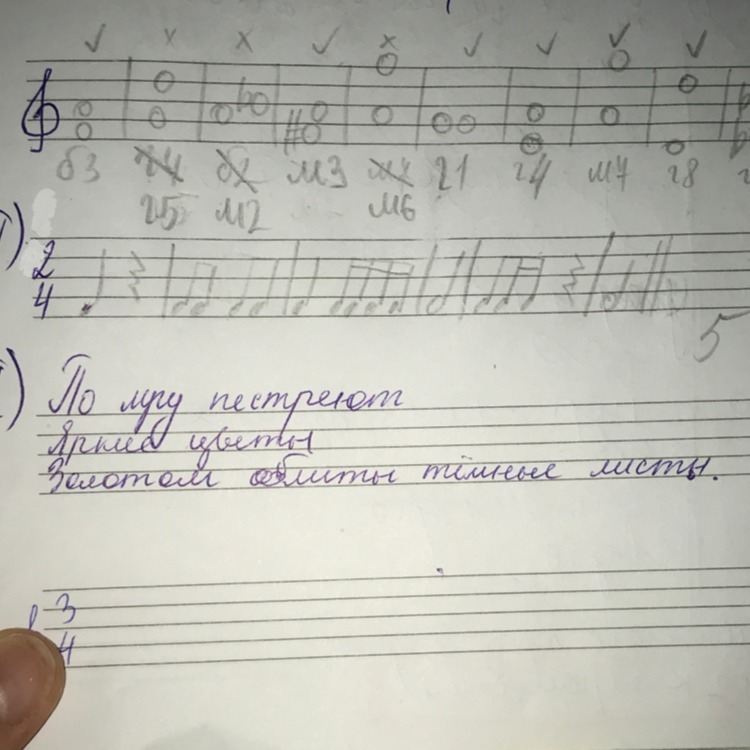 б3 ч4 б2 м3 м7 ч1 ч4 м7 ч8
ч5 м2 м6
2
4
5
По лугу пестреют
Яркие цветы
Золотом облиты тёмные листы.
3
4